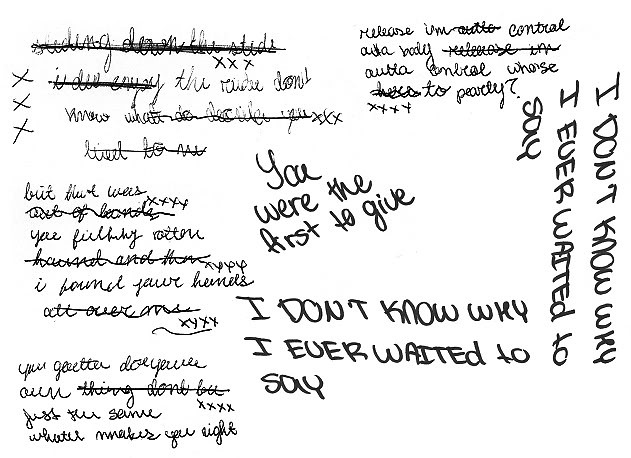 sliding down the slide
xxx
i do enjoy the ride dont
know what do decide you xxx
lied to me
x
x
x
release im outta control
outta body release im
outta control whose
here to party?
xxxx
You
were the
first to give
I DON'T KNOW WHY
I EVER WAITED to
SAY
but that was
xxxx
out of bounds
you filthy rotten
hound and then
xxxx
i found your hands
all over me
xxxx
I DON'T KNOW WHY
I EVER WAITED to
SAY
you gotta do your
own thing dont be
xxxx
just the same
what makes you right